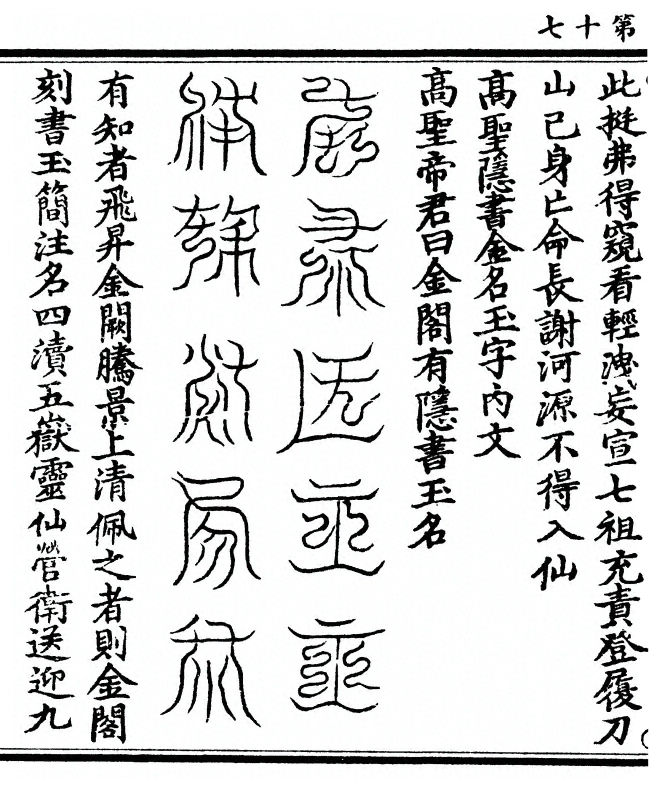 第十七
此挺弗得窺看輕洩妄宣七祖充責登履刀
山己身亡命長謝河源不得入仙
高聖隱書金名玉字内文
高聖帝君曰金閣有隱書玉名
有知者飛昇金闕騰景上清佩之者則金閣
刻書玉簡注名四瀆五嶽靈仙營衛送迎九